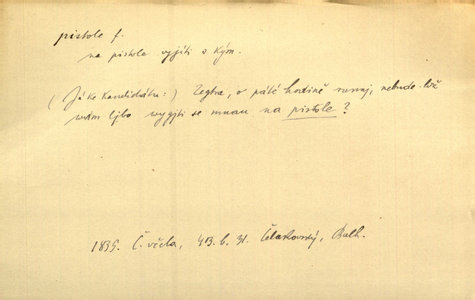 pistole f.
na pistole vyjíti s kým.
(Já ke kandidátu:) Zegtra, o páté hodině ranní, nebude-liž
wám libo wygjti se mnau na pistole?
1835. Č. včela, 413. b. 31. Čelakovský, Bulh.